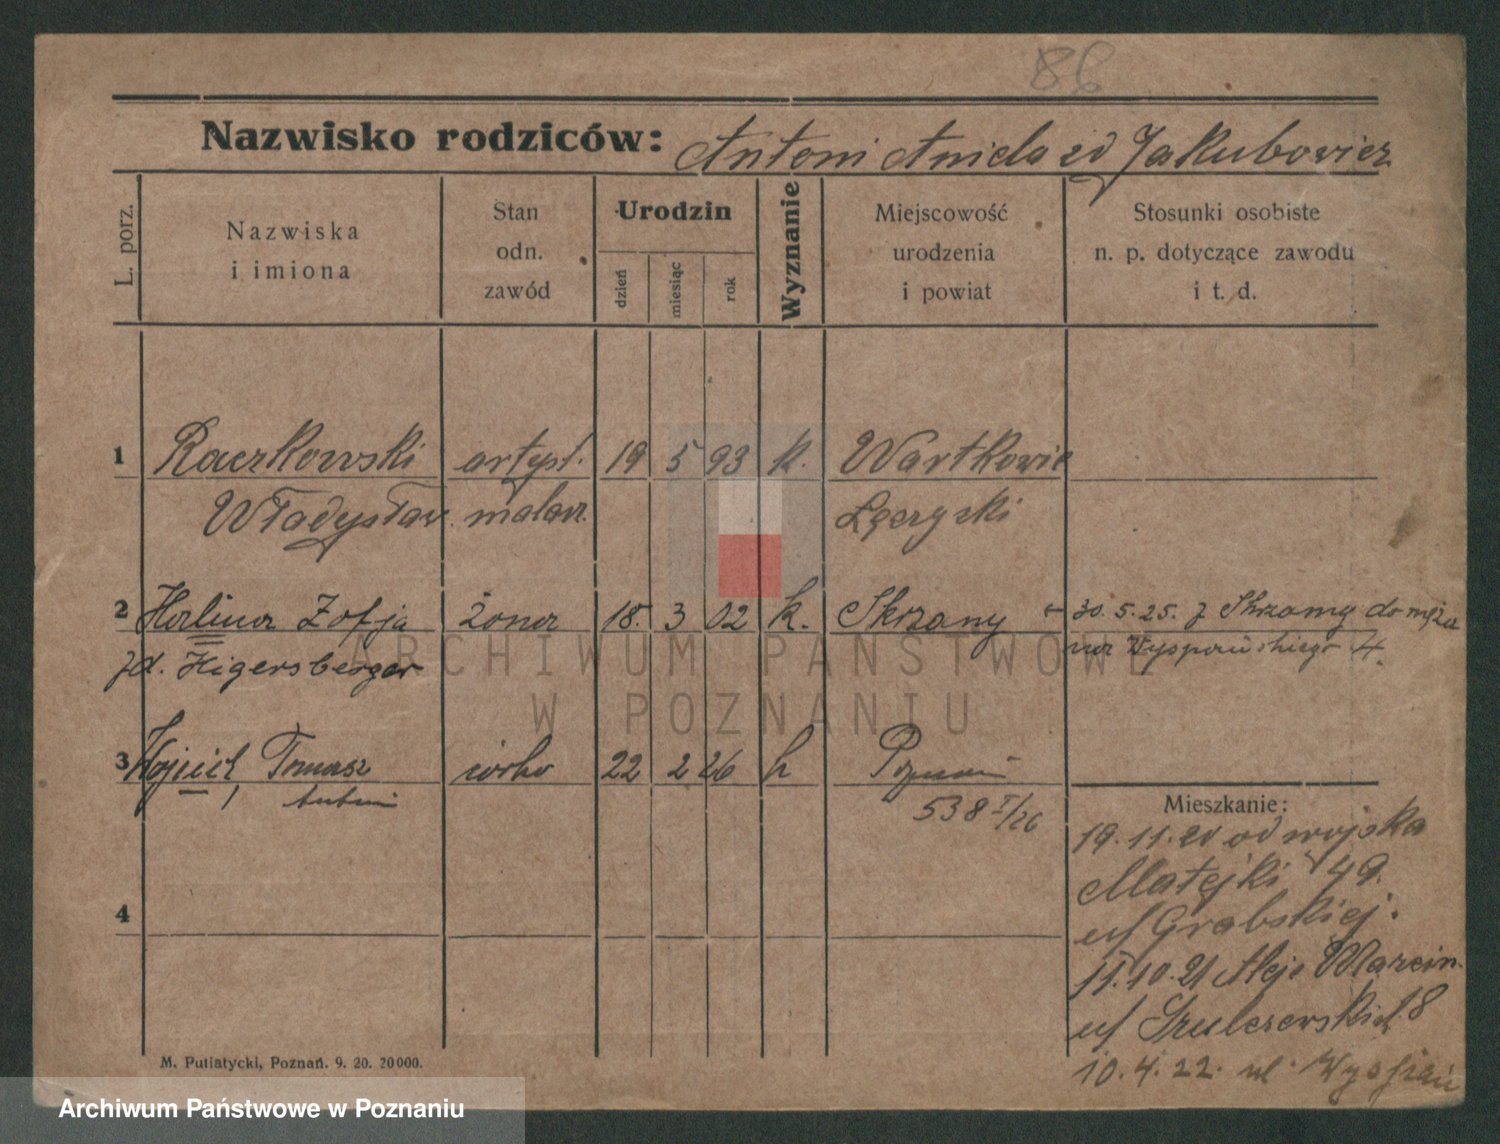 86
Nazwisko rodziców: Antoni Aniela zd Jakubowicz
L. porz.
Nazwiska
i imiona
Stan
odn.
zawód
Urodzin
dzień
miesiąc
rok
Wyznanie
Miejscowość
urodzenia
i powiat
Stosunki osobiste
n. p. dotyczące zawodu
i t. d.
1 Raczkowski artyst. 19 5 93 k. Wartkowic
Władysław malarz. Łęczycki
2 Halina Zofja żona 18. 3 02 k. Skrzany 30. 5. 25. z Skrzany do męża
zd. Higersberger na Wyspiańskiego
3 Wojciech Tomasz 22 2 26 k Poznań
Antoni 538 I/26
Mieszkanie:
19. 11. 20 od wojska
Matejki 49.
u/ Grabskiej.
11. 10. 21 Aleje Marcin.
u/ Szulczewskich 8
4
10. 4. 22. ul. Wyspiań
M. Putiatycki, Poznań. 9. 20. 20000.
ARCHIWUM PAŃSTWOWE
W POZNANIU
Archiwum Państwowe w Poznaniu